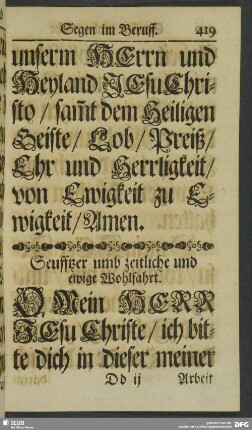 Segen im Beruff. 419
unserm HErrn und
Heyland JEsu Chri-
sto / sam̃t dem Heiligen
Geiste / Lob / Preiß /
Ehr und Herrligkeit /
von Ewigkeit zu E-
wigkeit / Amen.
Seufftzer umb zeitliche und
ewige Wohlfahrt.
O Mein HERR
JEsu Christe / ich bit-
te dich in dieser meiner
Dd ij Arbeit
SLUB